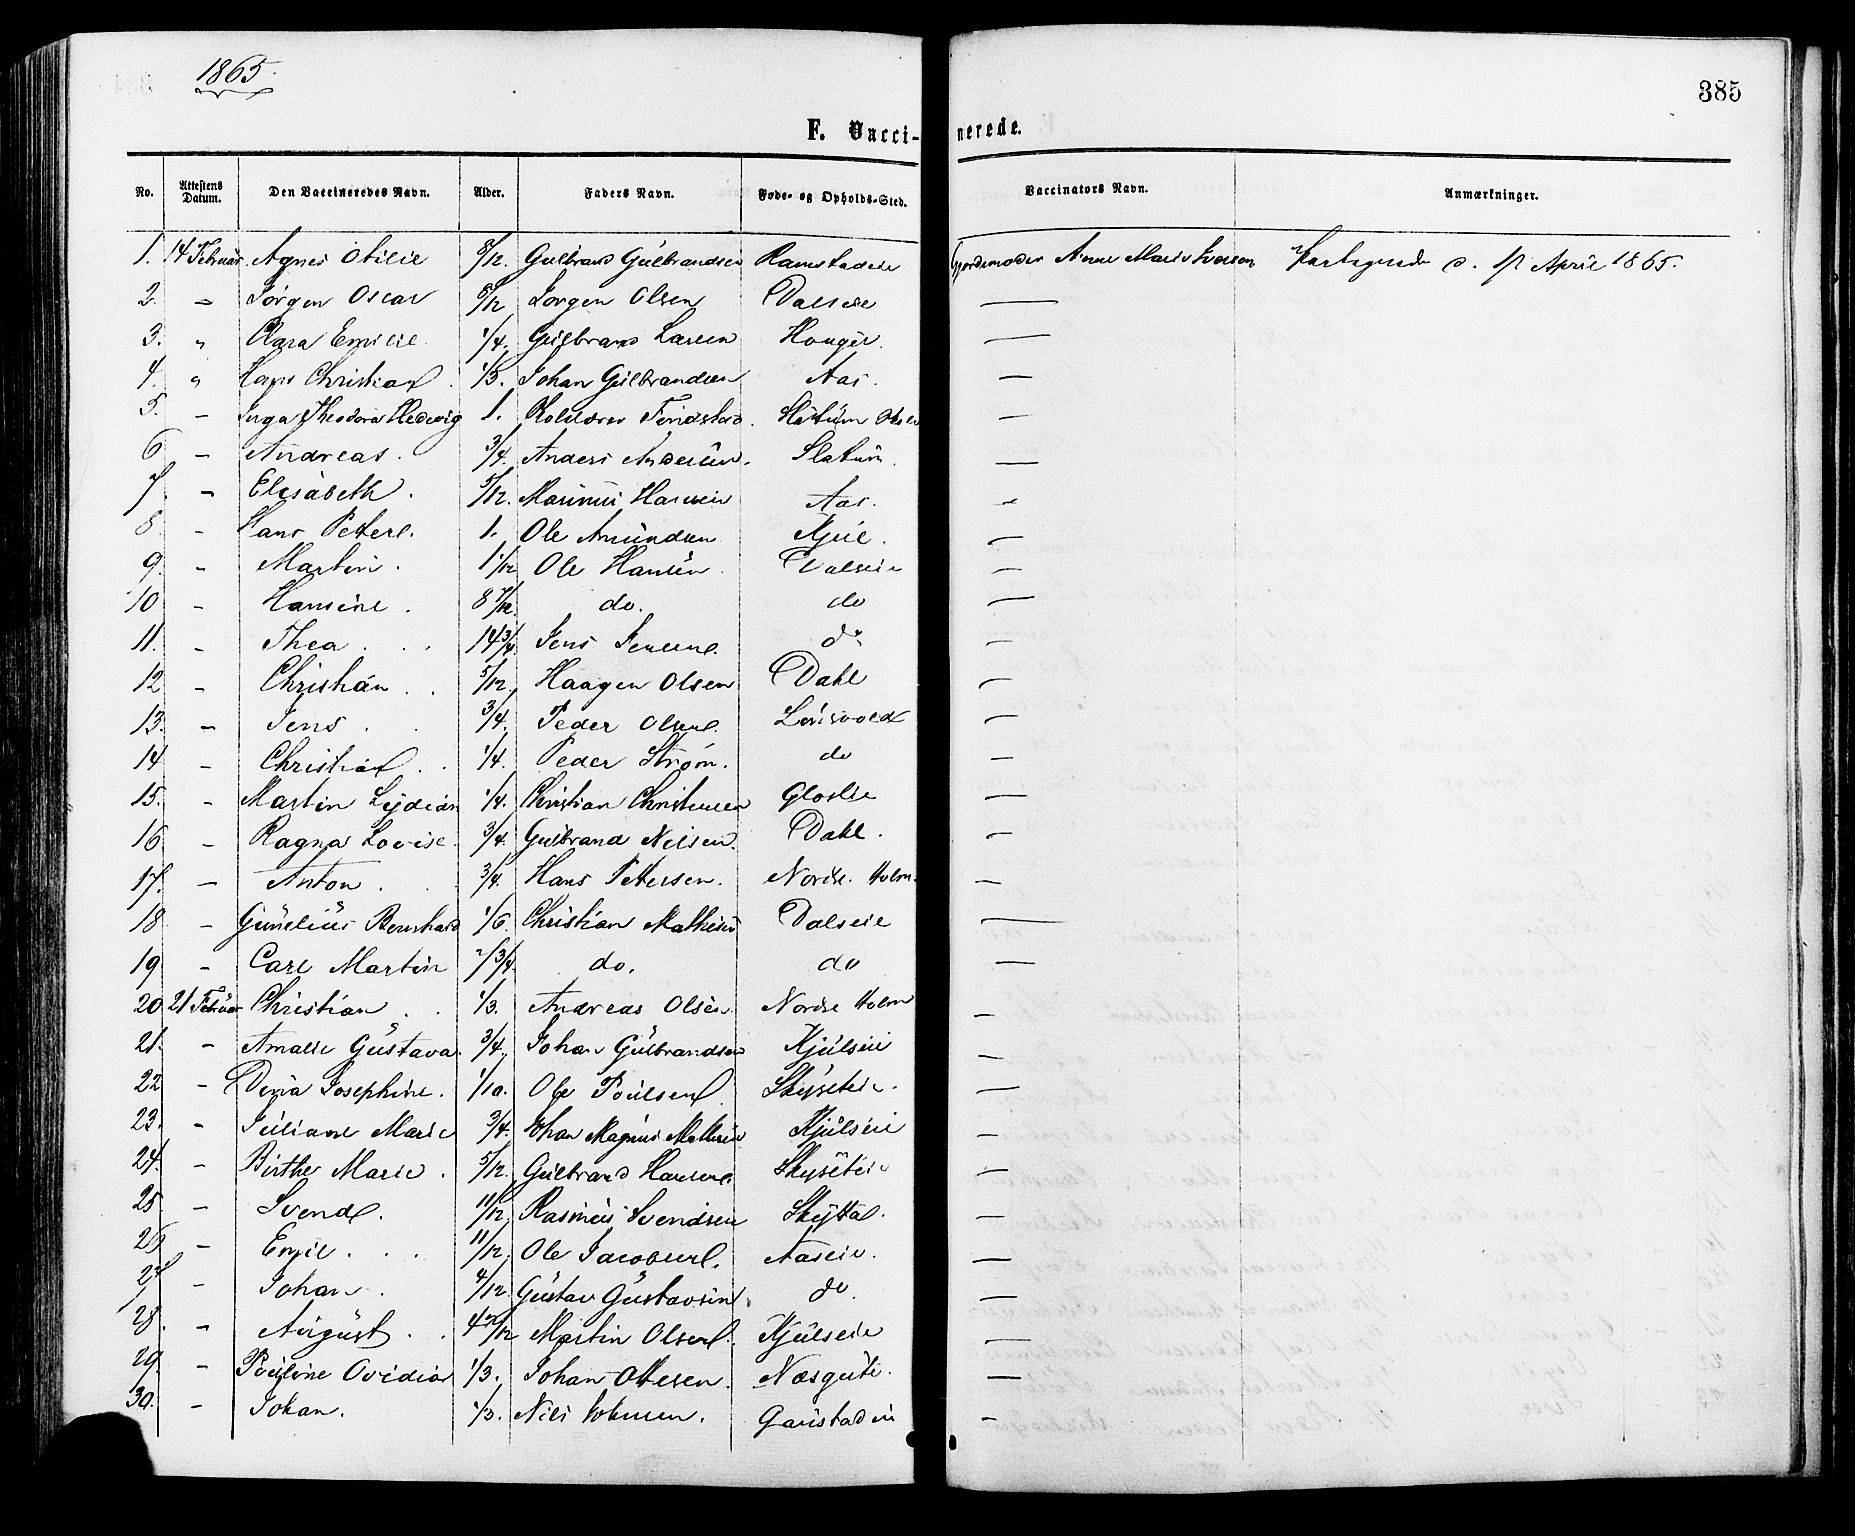 1865.
385
F. Vacci-nerede.
No. Attestens Datum. Den Vaccineredes Navn. Alder. Faders Navn. Føde- og Opholds-Sted. Vaccinators Navn. Anmærkninger.
1. 14 Februar Agnes Otilie 8/12. Gulbrand Gulbrandsen Ramstadeie Gjordemoder Anne Marie Iversen 1/2 April 1865.
2. — Jørgen Oscar 8/12 Jørgen Olsen Dalseie —
3. " Clara Emilie 1/4. Gulbrand Larsen Houger. —
4. " Hans Christian 1/3. Johan Gulbrandsen Aas. —
5. — Inga Theodora Hedevig 1. —
6 — Andreas. 3/4. Anders Andersen. Slatum. —
7. — Elisabeth. 5/12. Marinus Hansen Aas. —
8. — Hans Peter. 1. Ole Amundsen Kjul. —
9. — Martin. 1/12 Ole Hansen. Dalseie —
10 — Hansine. 8 7/12. do. do —
11. — Thea 14 3/4. Jens Jensen. do —
12 — Christian 5/12. Haagen Olsen Dahl —
13. — Jens 3/4. Peder Olsen. —
14 — Christian 1/4. Peder Strøm. do —
15. — Martin Lydian 1/4. Christian Christensen Gloslie —
16 — Ragna Lovise 3/4. Gulbrand Nilsen. Dahl. —
17. — Anton 3/4. Hans Pettersen. Nordre Holm. —
18 — Bernhard 1/6. Christian Mathisen Dalseie —
19 — Carl Martin 2 3/4. do. do —
20 21 Februar Christian 1/3. Andreas Olsen. Nordre Holm —
21. — Amalie Gustava. 3/4. Johan Gulbrandsen Kjulseie —
22 — Josephine. 1/10. Ole Poulsen. —
23. — Juliane Marie 3/4. Johan Magnus Kjulseie —
24. — Birthe Marie. 5/12. Gulbrand Hansen. —
25 — Svend. 11/12. Rasmus Svendsen Skyttal. —
26 — Emil 11/12. Ole Jacobsen. Aaseie. —
27 — Johan. 4/12. Gustav Gustavsen. do. —
28. — August 4 2/12 Martin Olsen. Kjulseie —
29. — Pouline Ovidia 1/3. Johan Ottesen. —
30. — Johan. 1/3. Nils Johnsen. —